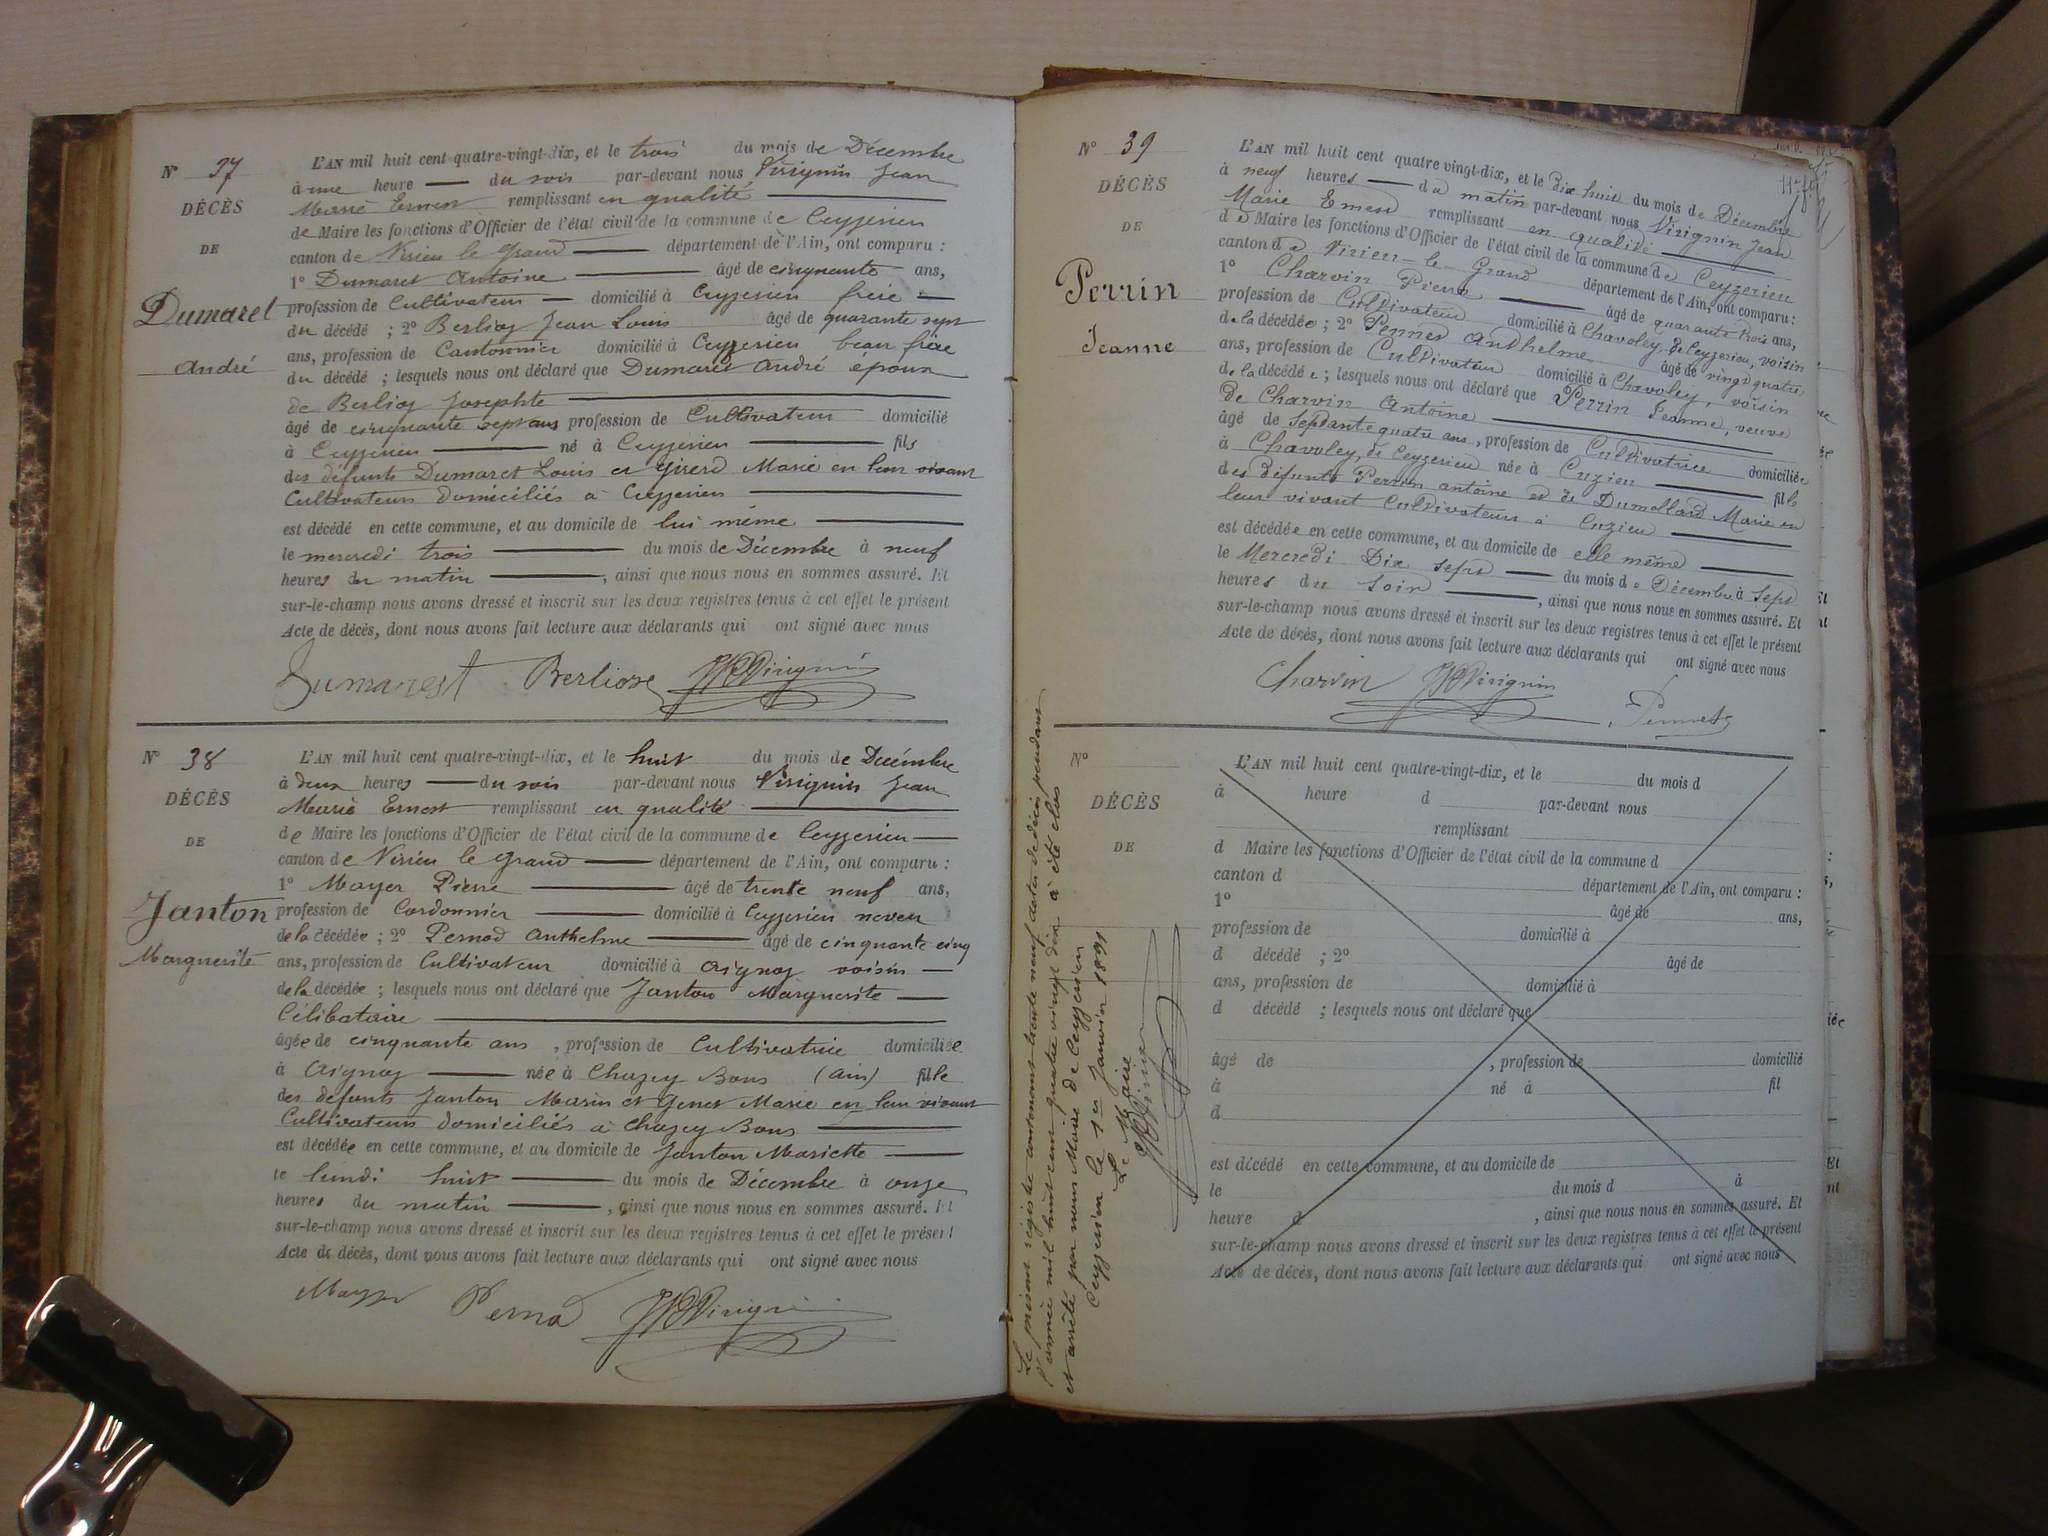 N° 37
DÉCÈS
DE
Dumaret
André
L'AN mil huit cent quatre-vingt-dix, et le trois du mois de Décembre
à une heure du soir par-devant nous Virignin Jean
Marie Ernest remplissant en qualité
de Maire les fonctions d'Officier de l'état civil de la commune de Ceyzerieu
canton de Virieu le Grand département de l'Ain, ont comparu :
1° Dumaret Antoine âgé de cinquante ans,
profession de Cultivateur domicilié à Ceyzerieu frère
du décédé ; 2° Berlioz Jean Louis âgé de quarante sept
ans, profession de Cantonnier domicilié à Ceyzerieu beau frère
du décédé ; lesquels nous ont déclaré que Dumaret André époux
de Berlioz Josephte
âgé de cinquante sept ans profession de Cultivateur domicilié
à Ceyzerieu né à Ceyzerieu fils
des défunts Dumaret Louis et Girerd Marie en leur vivant
Cultivateurs domiciliés à Ceyzerieu
est décédé en cette commune, et au domicile de lui même
le mercredi trois du mois de Décembre à neuf
heures du matin , ainsi que nous nous en sommes assuré. Et
sur-le-champ nous avons dressé et inscrit sur les deux registres tenus à cet effet le présent
Acte de décès, dont nous avons fait lecture aux déclarants qui ont signé avec nous
Dumarest Berlioz JMEVirignin
N° 38
DÉCÈS
DE
Janton
Marguerite
L'AN mil huit cent quatre-vingt-dix, et le huit du mois de Décembre
à deux heures du soir par-devant nous Virignin Jean
Marie Ernest remplissant en qualité
de Maire les fonctions d'Officier de l'état civil de la commune de Ceyzerieu
canton de Virieu le Grand département de l'Ain, ont comparu :
1° Mayer Pierre âgé de trente neuf ans,
profession de Cordonnier domicilié à Ceyzerieu neveu
de la décédée ; 2° Pernod Anthelme âgé de cinquante cinq
ans, profession de Cultivateur domicilié à Aignoz voisin
de la décédée ; lesquels nous ont déclaré que Janton Marguerite
Célibataire
âgée de cinquante ans , profession de Cultivatrice domiciliée
à Aignoz née à Chazey Bons (Ain) fille
des défunts Janton Marin et Genet Marie en leur vivant
Cultivateurs domiciliés à Chazey Bons
est décédée en cette commune, et au domicile de Janton Mariette
le lundi huit du mois de Décembre à onze
heures du matin , ainsi que nous nous en sommes assuré. Et
sur-le-champ nous avons dressé et inscrit sur les deux registres tenus à cet effet le présent
Acte de décès, dont nous avons fait lecture aux déclarants qui ont signé avec nous
Pernod JMEVirignin
N° 39
DÉCÈS
DE
Perrin
Jeanne
L'AN mil huit cent quatre vingt-dix, et le Dix huit du mois de Décembre
à neuf heures du matin par-devant nous Virignin Jean
Marie Ernest remplissant en qualité
de Maire les fonctions d'Officier de l'état civil de la commune de Ceyzerieu
canton de Virieu-le-Grand département de l'Ain, ont comparu :
1° Charvin Pierre âgé de quarante trois ans,
profession de Cultivateur domicilié à Chavoley, de Ceyzerieu, voisin
de la décédée ; 2° Pennet Anthelme âgé de vingt quatre
ans, profession de Cultivateur domicilié à Chavoley, voisin
de la décédée ; lesquels nous ont déclaré que Perrin Jeanne, veuve
de Charvin Antoine
âgé de Septante quatre ans, profession de Cultivatrice domiciliée
à Chavoley, de Ceyzerieu née à Cuzieu fille
des défunts Perrin antoine et de Dumollard Marie en
leur vivant Cultivateurs à Cuzieu
est décédée en cette commune, et au domicile de elle même
le Mercredi Dix sept du mois de Décembre à Sept
heures du soir , ainsi que nous nous en sommes assuré. Et
sur-le-champ nous avons dressé et inscrit sur les deux registres tenus à cet effet le présent
Acte de décès, dont nous avons fait lecture aux déclarants qui ont signé avec nous
Charvin JMEVirignin Pennet
N°
DÉCÈS
DE
L'AN mil huit cent quatre-vingt-dix, et le du mois d
à heure d par-devant nous
remplissant
d Maire les fonctions d'Officier de l'état civil de la commune d
canton d département de l'Ain, ont comparu :
1° âgé de ans,
profession de domicilié à
d décédé ; 2° âgé de
ans, profession de domicilié à
d décédé ; lesquels nous ont déclaré que
âgé de , profession de domicilié
à né à fil
d
est décédé en cette commune, et au domicile de
le du mois d à
heure d , ainsi que nous nous en sommes assuré. Et
sur-le-champ nous avons dressé et inscrit sur les deux registres tenus à cet effet le présent
Acte de décès, dont nous avons fait lecture aux déclarants qui ont signé avec nous
Le présent registre contenant trente neuf actes de décès pendant
l'année mil huit cent quatre vingt dix a été clos
et arrêté par nous Maire de Ceyzerieu
Ceyzerieu le 1er Janvier 1891
Le Maire